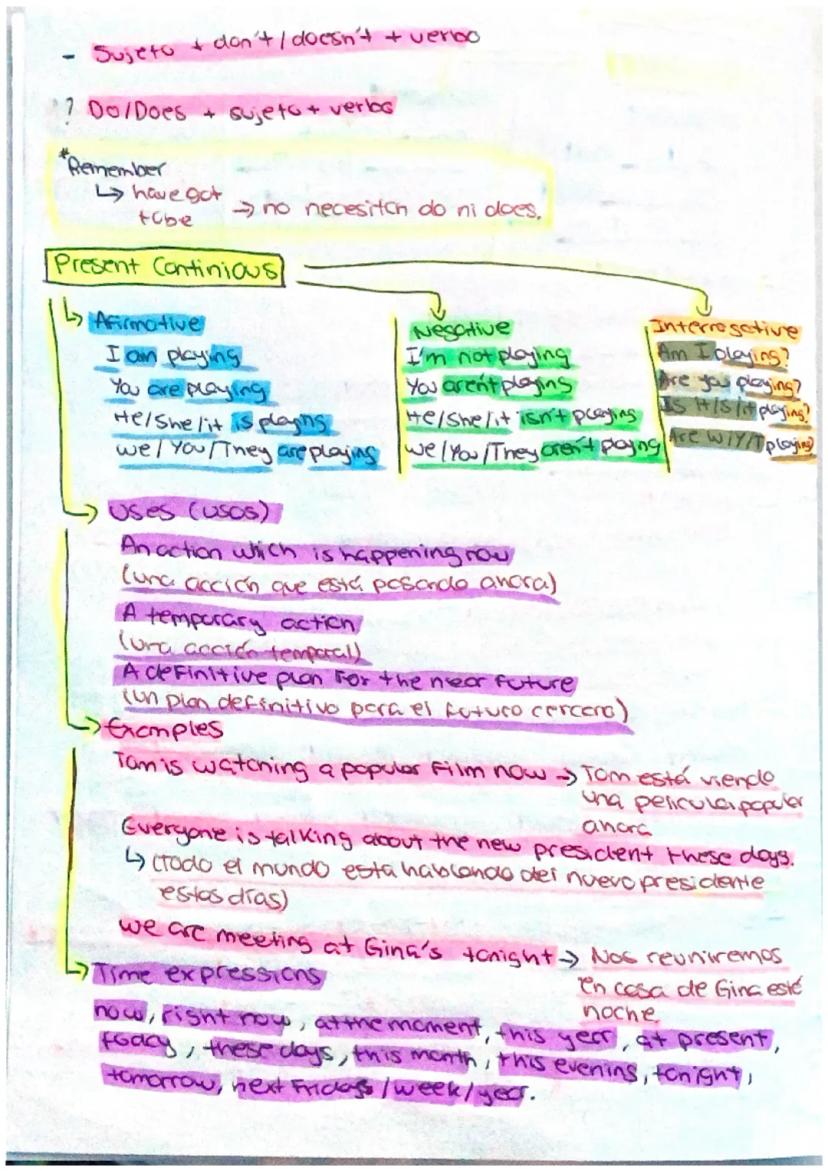 - Sujeto + don't / doesn't + verbo
? Do/Does + sujeto + verbo
*Remember
↳ have got
to be → no necesitan do ni does.
Present Continious
↳ Afirmative
I am playing
You are playing
He/She/it is playing
We/You/They are playing
Negative
I'm not playing
You aren't playing
He/She/it isn't playing
We/You/They aren't playing
Interrogative
Am I playing?
Are you playing?
Is H/S/it playing?
Are W/Y/T playing?
→ Uses (usos)
An action which is happening now
(una acción que está pasando ahora)
A temporary action
(una acción temporal)
A definitive plan for the near future
(un plan definitivo para el futuro cercano)
→ Examples
Tom is watching a popular film now → Tom está viendo
una película popular
ahora
Everyone is talking about the new president these days.
↳ (todo el mundo está hablando del nuevo presidente
estos días)
We are meeting at Gina's tonight → Nos reuniremos
en casa de Gina esté
noche
→ Time expressions
now, right now, at the moment, this year, at present,
today, these days, this month, this evening, tonight,
tomorrow, next Friday / week / year.